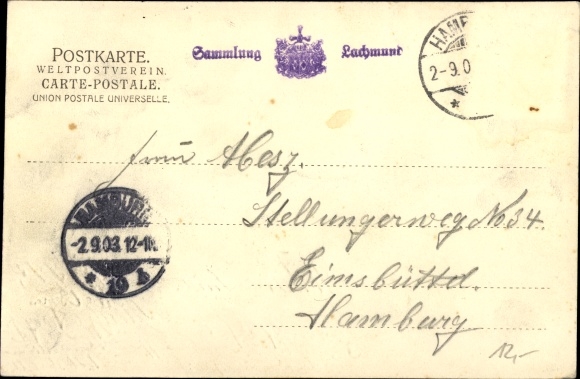 POSTKARTE.
WELTPOSTVEREIN.
CARTE-POSTALE.
UNION POSTALE UNIVERSELLE.
Sammlung Lachmund
HAMB
2-9.0
*
Frau Mesz.
Stellungerweg No 34.
Eimsbüttel.
Hamburg
HAMBURG
-2.9.03.12-1N.
* 19 b
12,-